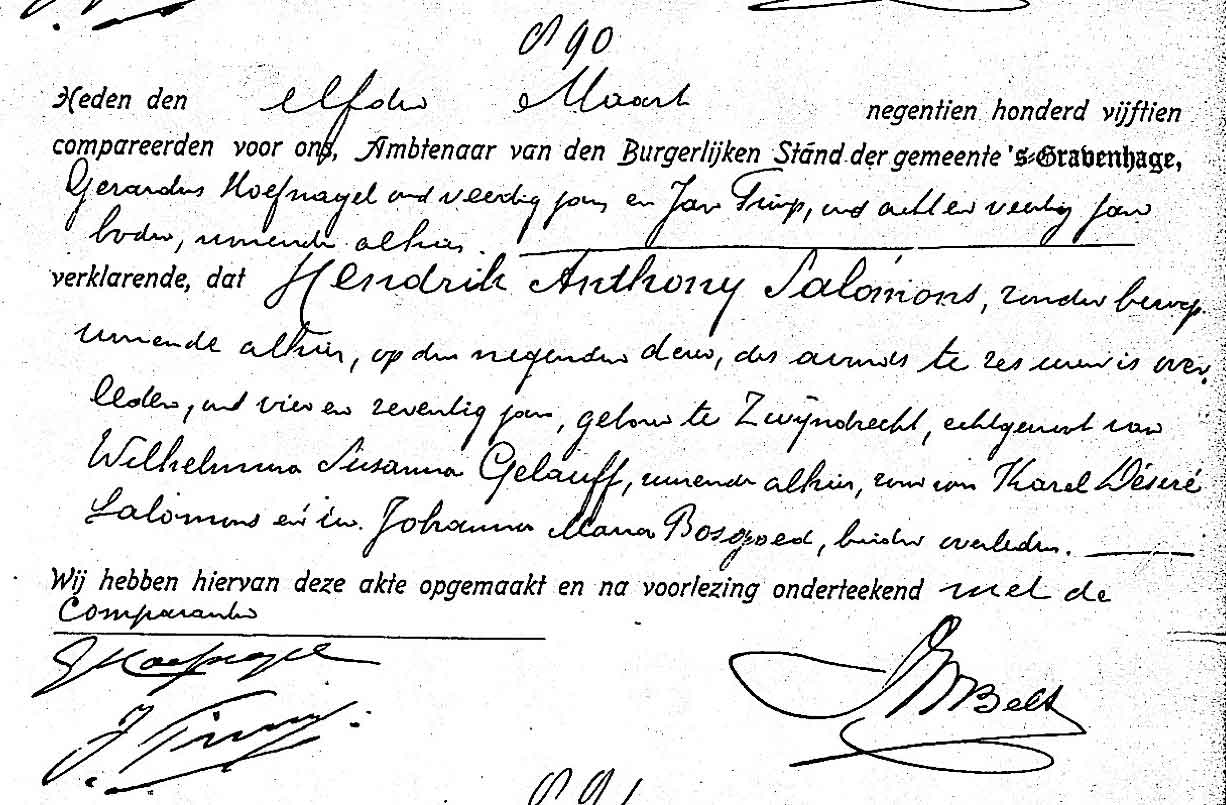 890
Heden den elfden Maart negentien honderd vijftien
compareerden voor ons, Ambtenaar van den Burgerlijken Stand der gemeente 's-Gravenhage,
Gerardus Hoefnagel oud veertig jaar en Jan Timp, oud acht en veertig jaar
boden, wonende alhier.
verklarende, dat Hendrik Anthony Salomons, zonder beroep
wonende alhier, op den negenden dezer, des avonds te zes uren is over-
leden, oud vier en zeventig jaar, geboren te Zwijndrecht, echtgenoot van
Wilhelmina Susanna Gelauff, wonende alhier, zoon van Karel Désiré
Salomons en van Johanna Maria Bosgoed, beiden overleden.
Wij hebben hiervan deze akte opgemaakt en na voorlezing onderteekend met de
Comparanten
G Hoefnagel
J. Timp.
Belt
891